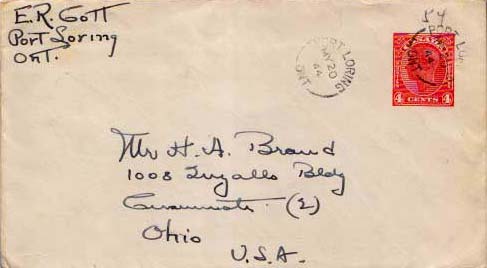 E.R. Gott
Port Loring
Ont.
54
PORT LORING
MY 20
44
ONT
PORT L
44
ONT
CANADA
4 CENTS 4
Mr H. A. Brand
1008 Bldg
Cincinnati (2)
Ohio
U.S.A.